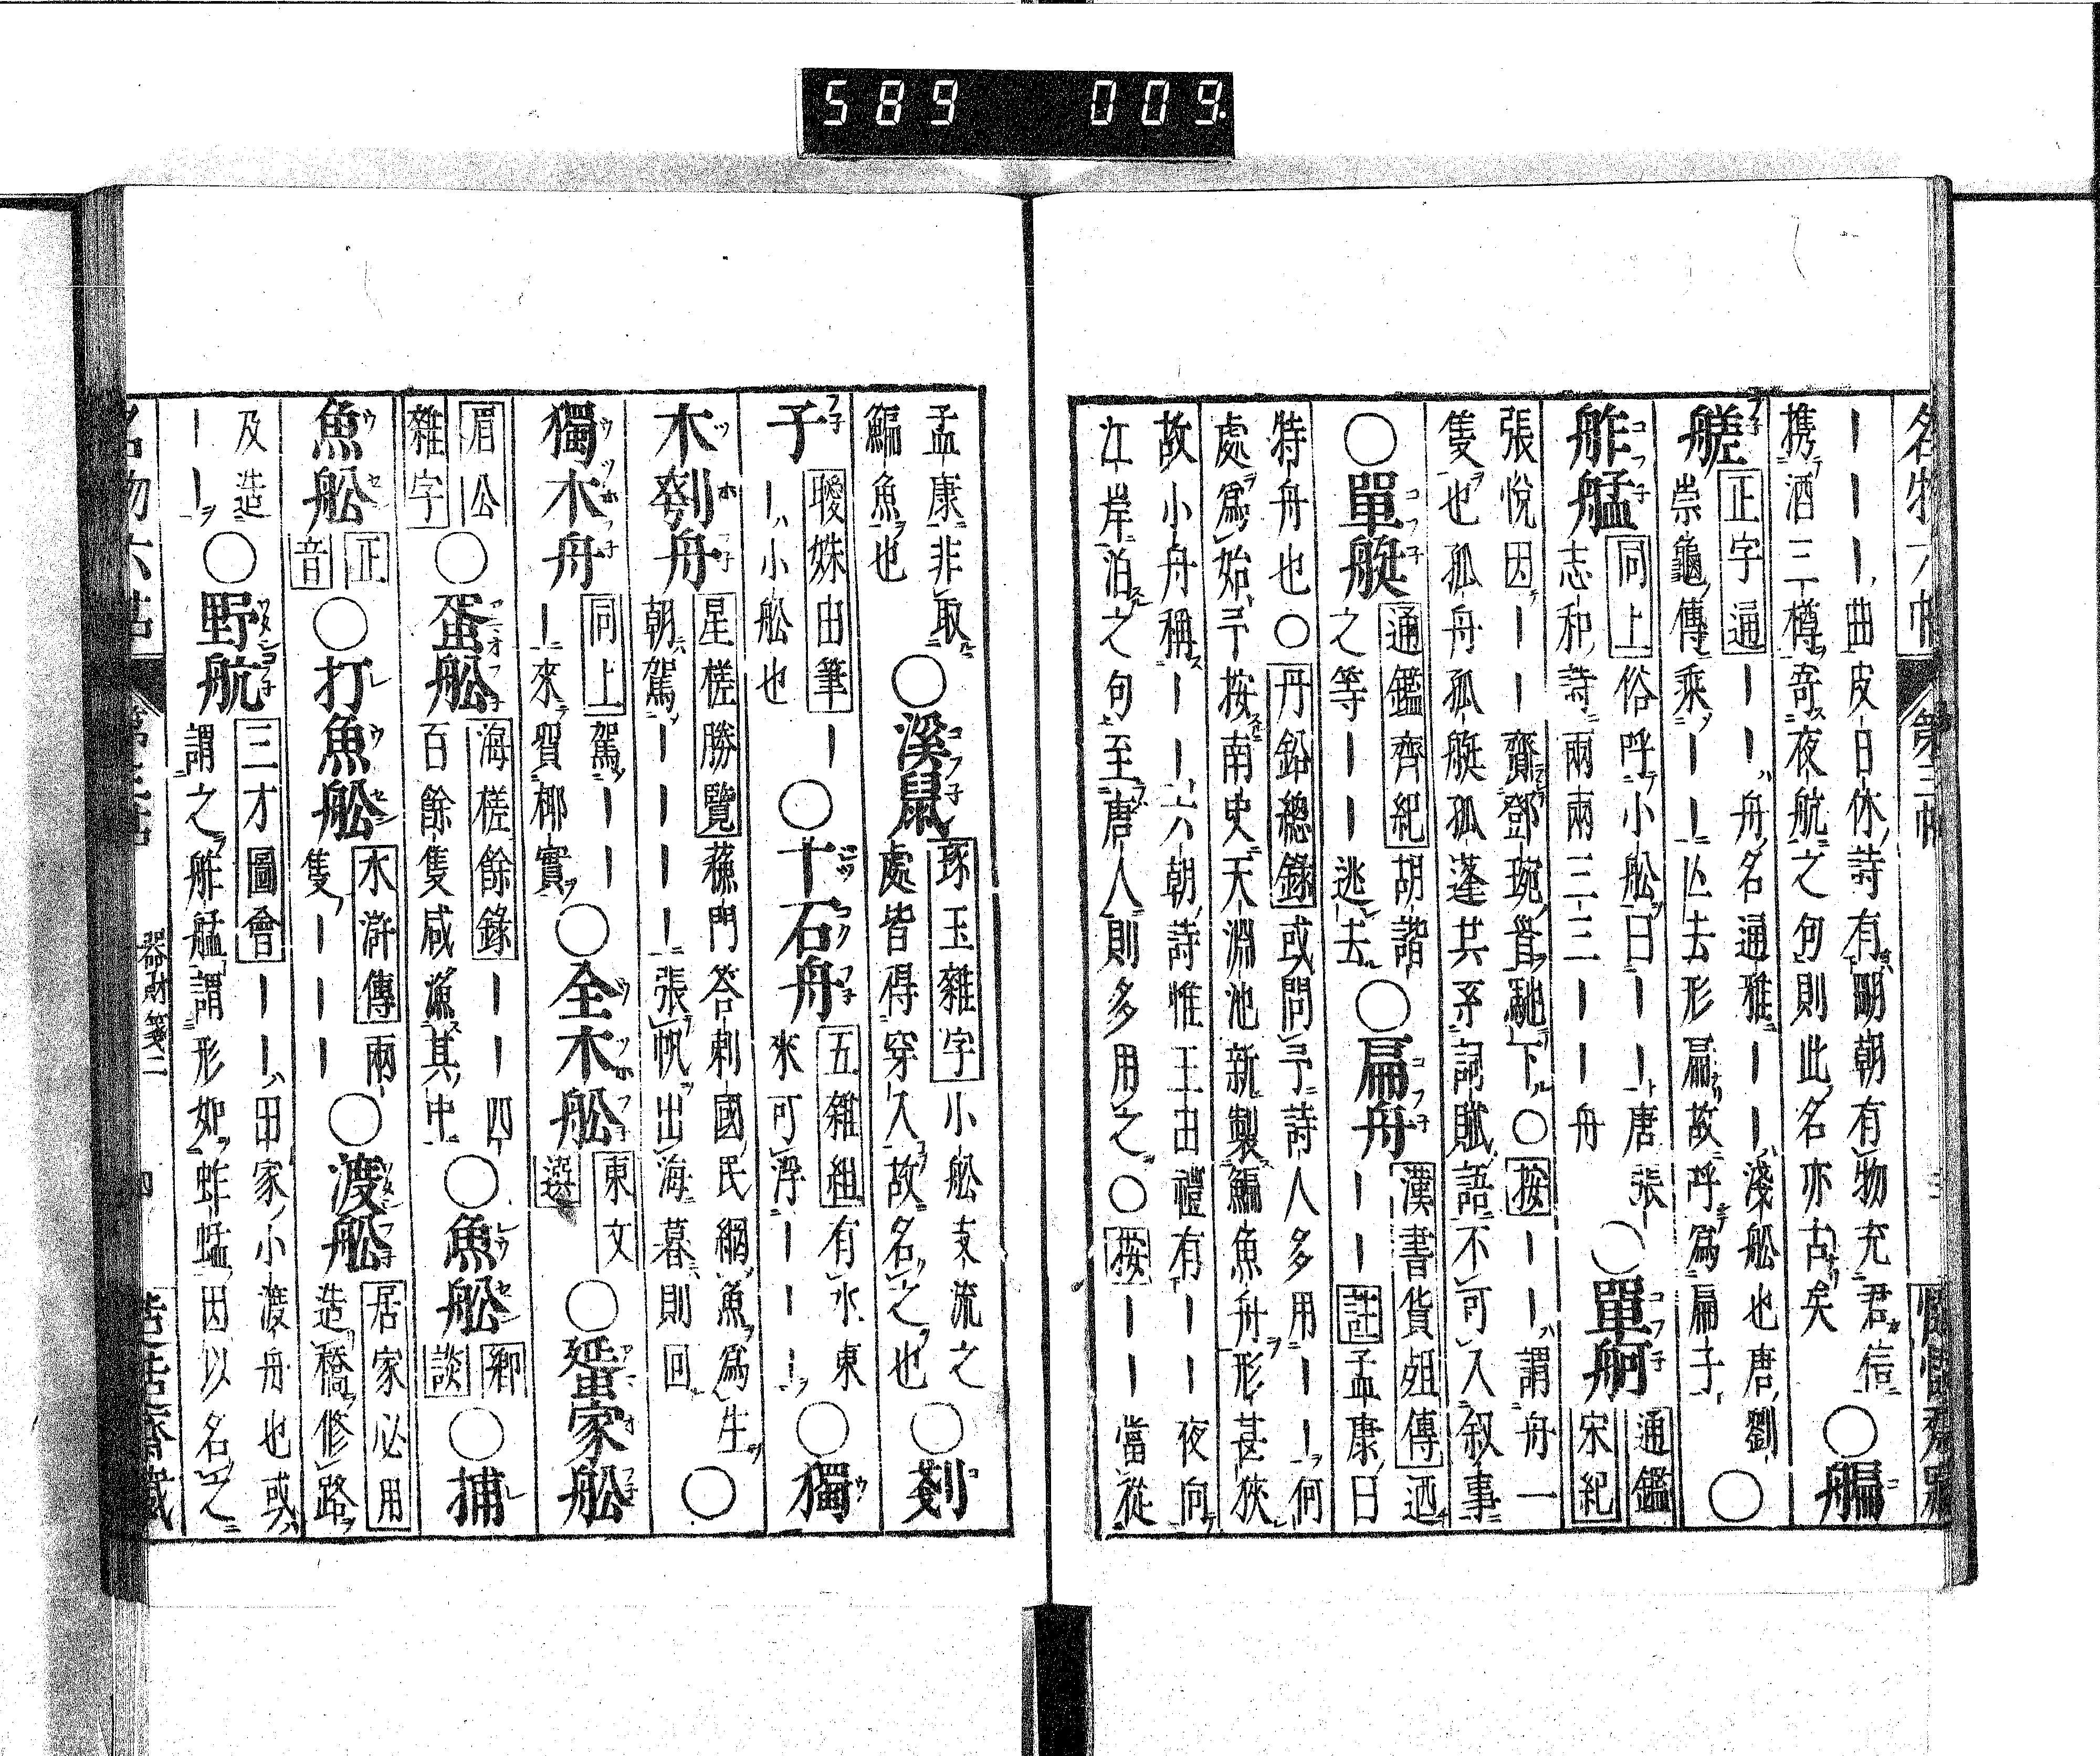 名物六帖 第三帖
｜｜｜曲皮日休詩有明朝有物充君信
携酒三樽寄夜航之句則此名亦古矣
○艑
艖
正字通｜｜舟名通雅｜｜淺舩也唐劉
崇龜傳乘｜｜亾去形扁故呼爲扁子
○
舴艋
同上俗呼小舩曰｜｜唐張
志和詩兩兩三三｜｜舟
○單舸
通鑑
宋紀
張悅因｜｜齎鄧琬首馳下○按｜｜謂舟一
隻也孤舟孤艇孤蓬共系詞賦語不可入叙事
○單艇
通鑑齊紀胡諧
之等｜｜逃去
○扁舟
漢書貨殖傳迺
｜｜註孟康曰
特舟也○丹鉛總錄或問予詩人多用｜｜何
處爲始予按南史天淵池新製鯿魚舟形甚狹
故小舟稱｜｜六朝詩惟王由禮有｜｜夜向
江岸泊之句至唐人則多用之○按｜｜當從
孟康非取
鯿魚也
○溪鼠
琢玉雜字小舩支流之
處皆得穿入故名之也
○剗
子
曖姝由筆｜
｜小舩也
○十石舟
五雜組有水東
來可浮｜｜｜
○獨
木刳舟
星槎勝覽蘇門答剌國民網魚爲生
朝駕｜｜｜｜張帆出海暮則回
○
獨木舟
同上駕｜｜
｜來買椰實
○全木舩
東文
選
○蜑家舩
眉公
雜字
○蛋舩
海槎餘錄｜｜四
百餘隻咸漁其中
○魚舩
鄉
談
○捕
魚舩
正
音
○打魚舩
水滸傳兩
隻｜｜｜
○渡舩
居家必用
造橋修路
及造
｜｜
○野航
三才圖會｜｜田家小渡舟也或
謂之舴艋謂形如蚱蜢因以名之
器財箋二
589 009